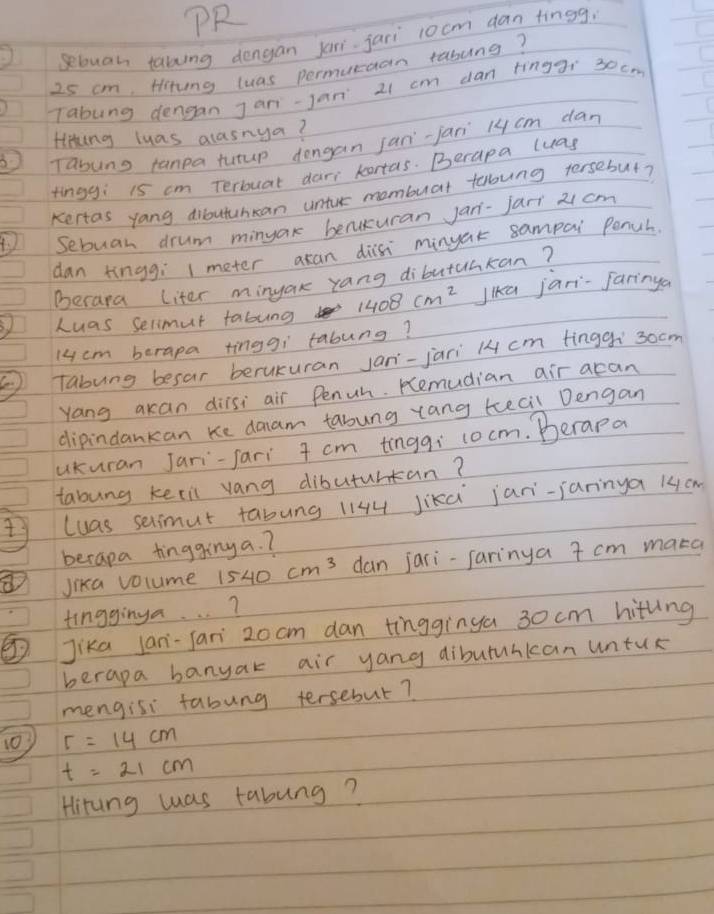 PR
1) Sebuah tabung dengan jari-jari 10 cm dan tinggi
25 cm. Hitung luas permukaan tabung?
2) Tabung dengan Jari-Jari 21 cm dan tinggi 30 cm
Hitung luas alasnya?
3) Tabung tanpa tutup dengan jari-jari 14 cm dan
tinggi 15 cm Terbuat dari kertas. Berapa luas
kertas yang dibutuhkan untuk membuat tabung tersebut?
4) Sebuah drum minyak berukuran jari-jari 21 cm
dan tinggi 1 meter akan diisi minyak sampai penuh.
Berapa Liter minyak yang dibutuhkan?
5) Luas selimut tabung 1408 cm² jika jari-jarinya
14 cm berapa tinggi tabung?
6) Tabung besar berukuran jari-jari 14 cm tinggi 30 cm
yang akan diisi air penuh. Kemudian air akan
dipindankan ke dalam tabung yang kecil Dengan
ukuran Jari-jari 7 cm tinggi 10 cm. Berapa
tabung kecil yang dibutuhkan?
7) Luas selimut tabung 1144 Jika jari-jarinya 14 cm
berapa tingginya.?
8) Jika volume 1540 cm³ dan jari-jarinya 7 cm maka
tingginya ... ?
9) Jika jari-jari 20 cm dan tingginya 30 cm hitung
berapa banyak air yang dibutuhkan untuk
mengisi tabung tersebut?
10) r = 14 cm
t = 21 cm
Hitung luas tabung?